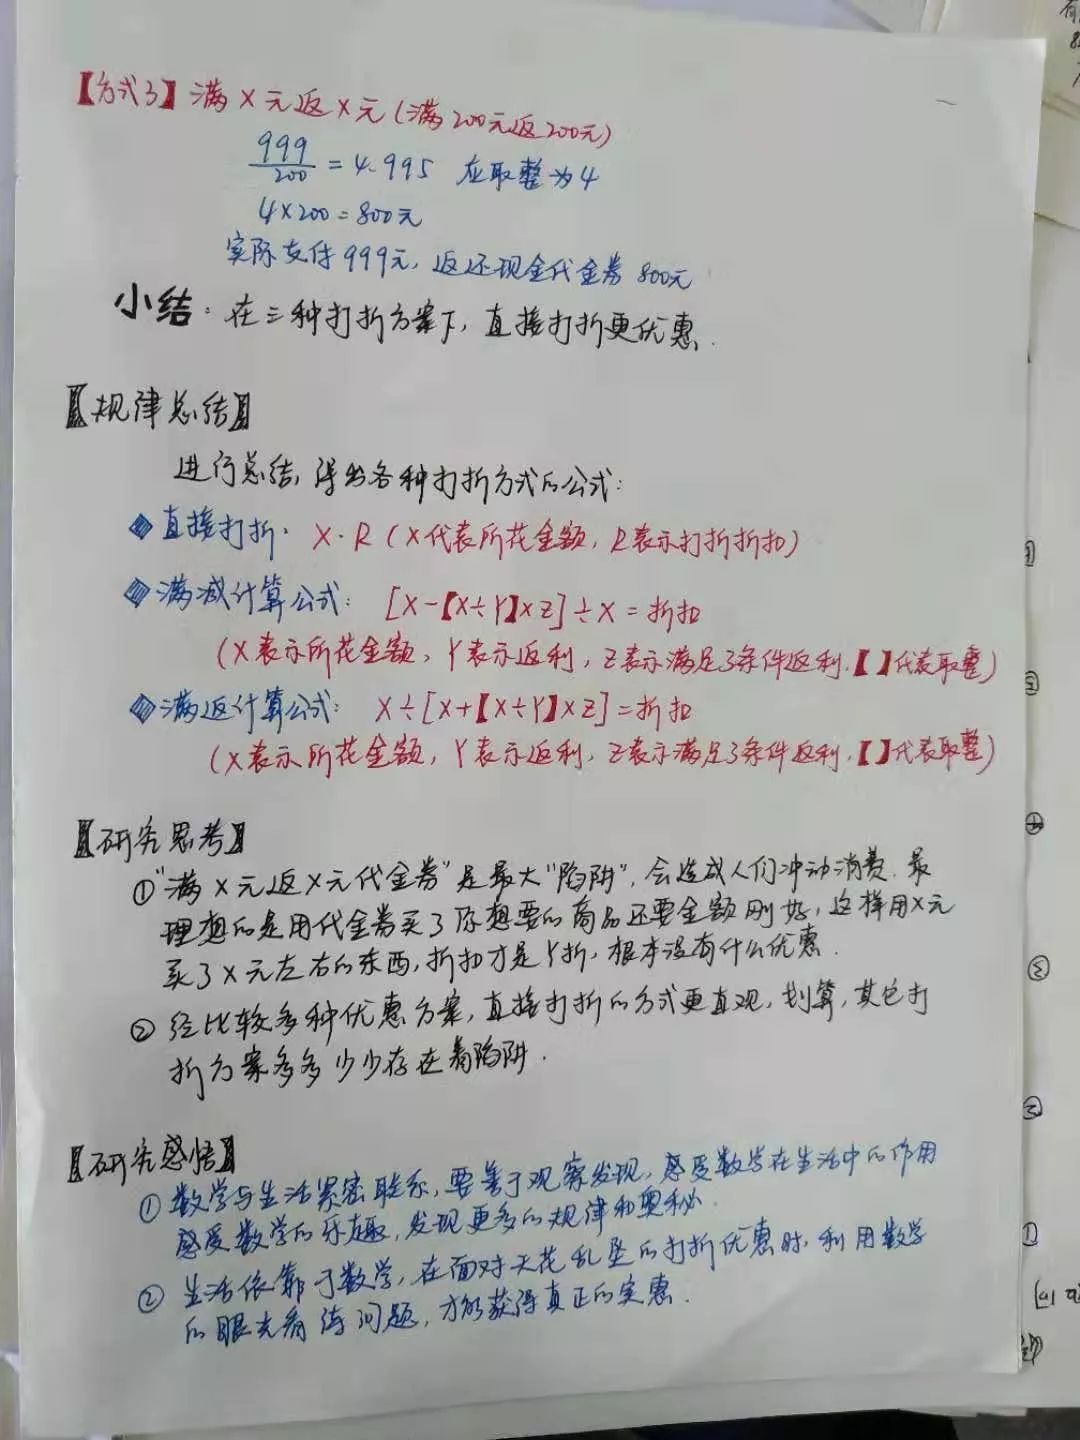 【方式3】满X元返X元(满200元返200元)
999/200=4.995 应取整为4
4×200=800元
实际支付999元,返还现金代金券800元
小结:在三种打折方案下,直接打折更优惠.
【规律总结】
进行总结,得出各种打折方式的公式:
◆直接打折. X·R(X代表所花金额,R表示打折折扣)
◆满减计算公式: [X-【X÷Y】×Z]÷X=折扣
(X表示所花金额,Y表示返利,Z表示满足了条件返利.【】代表取整)
◆满返计算公式: X÷[X+【X÷Y】×Z]=折扣
(X表示所花金额,Y表示返利,Z表示满足了条件返利.【】代表取整)
【研究思考】
①"满X元返X元代金券"是最大"陷阱",会造成人们冲动消费.最
理想的是用代金券买了你想要的商品还要金额刚好,这样用X元
买了X元左右的东西,折扣才是Y折,根本没有什么优惠.
②经比较多种优惠方案,直接打折的方式更直观,划算,其它打
折方案多多少少存在着陷阱.
【研究感悟】
①数学与生活紧密联系,要善于观察发现,感受数学在生活中的作用
感受数学的乐趣,发现更多的规律和奥秘.
②生活依靠于数学,在面对天花乱坠的打折优惠时,利用数学
的眼光看待问题,才能获得真正的实惠.